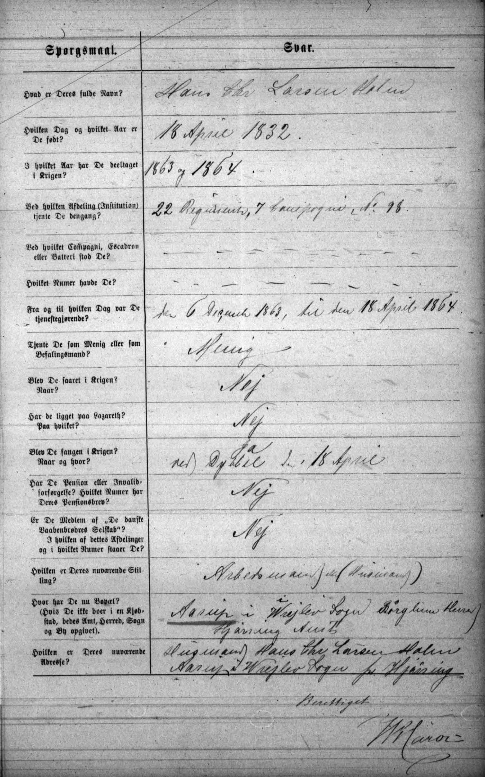 Spørgsmaal.
Svar.
Hvad er Deres fulde Navn?
Hans Chr Larsen Holm
Hvilken Dag og hvilket Aar er
De født?
18 April 1832.
I hvilket Aar har De deeltaget
i Krigen?
1863 og 1864.
Ved hvilken Afdeling (Institution)
tjente De dengang?
22 Regiment, 7 Compagni, No. 98
Ved hvilket Compagni, Escadron
eller Batteri stod De?
– – – – – – –
Hvilket Numer havde De?
– – – – – –
Fra og til hvilken Dag var De
tjenestegjørende?
den 6 December 1863, til den 18 April 1864
Tjente De som Menig eller som
Befalingsmand?
Menig
Blev De saaret i Krigen?
Naar?
Nej
Har De ligget paa Lazareth?
Paa hvilket?
Nej
Blev De fangen i Krigen?
Naar og hvor?
Ja
ved Dybbøl den 18 April
Har De Pension eller Invalid-
forsørgelse? Hvilket Numer har
Deres Pensionsbrev?
Nej
Er De Medlem af „De danske
Vaabenbrødres Selskab"?
I hvilken af dettes Afdelinger
og i hvilket Numer staaer De?
Nej
Hvilken er Deres nuværende Stil-
ling?
Arbedsmand (Husmand)
Hvor har De nu Bopæl?
(Hvis De ikke boer i en Kjøb-
stad, bedes Amt, Herred, Sogn
og By opgivet).
Aarup i Wrejlev Sogn Børglum Herre
Hjørring Amt
Hvilken er Deres nuværende
Adresse?
Husmand Hans Chr Larsen Holm
Aarup i Wrejlev Sogn pr Hjørring
Berettiget